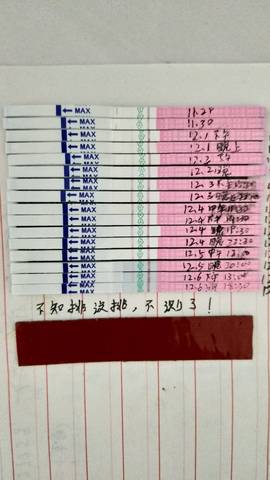 MAX 11.29
MAX 11.30
MAX 12.1 下午
MAX 12.1 晚上
MAX 12.2 下午
MAX 12.2 晚
MAX 12.3
MAX 12.3 晚
MAX 12.4
MAX 12.4
MAX 12.4 晚 19:30
MAX 12.4 晚 22:30
MAX 12.5 中 12:00
MAX 12.5 晚 20:00
MAX 12.6 13:00
MAX 12.6
不知排没排，不测了！